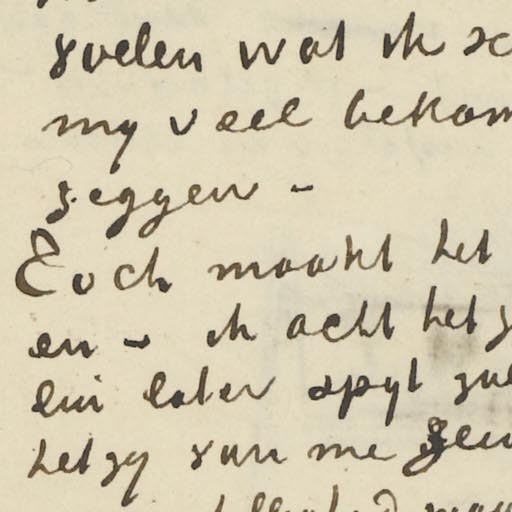 voelen wat ik
my veel bekom
zeggen -
Toch maakt het
en - ik acht het
later spyt
het zy van me